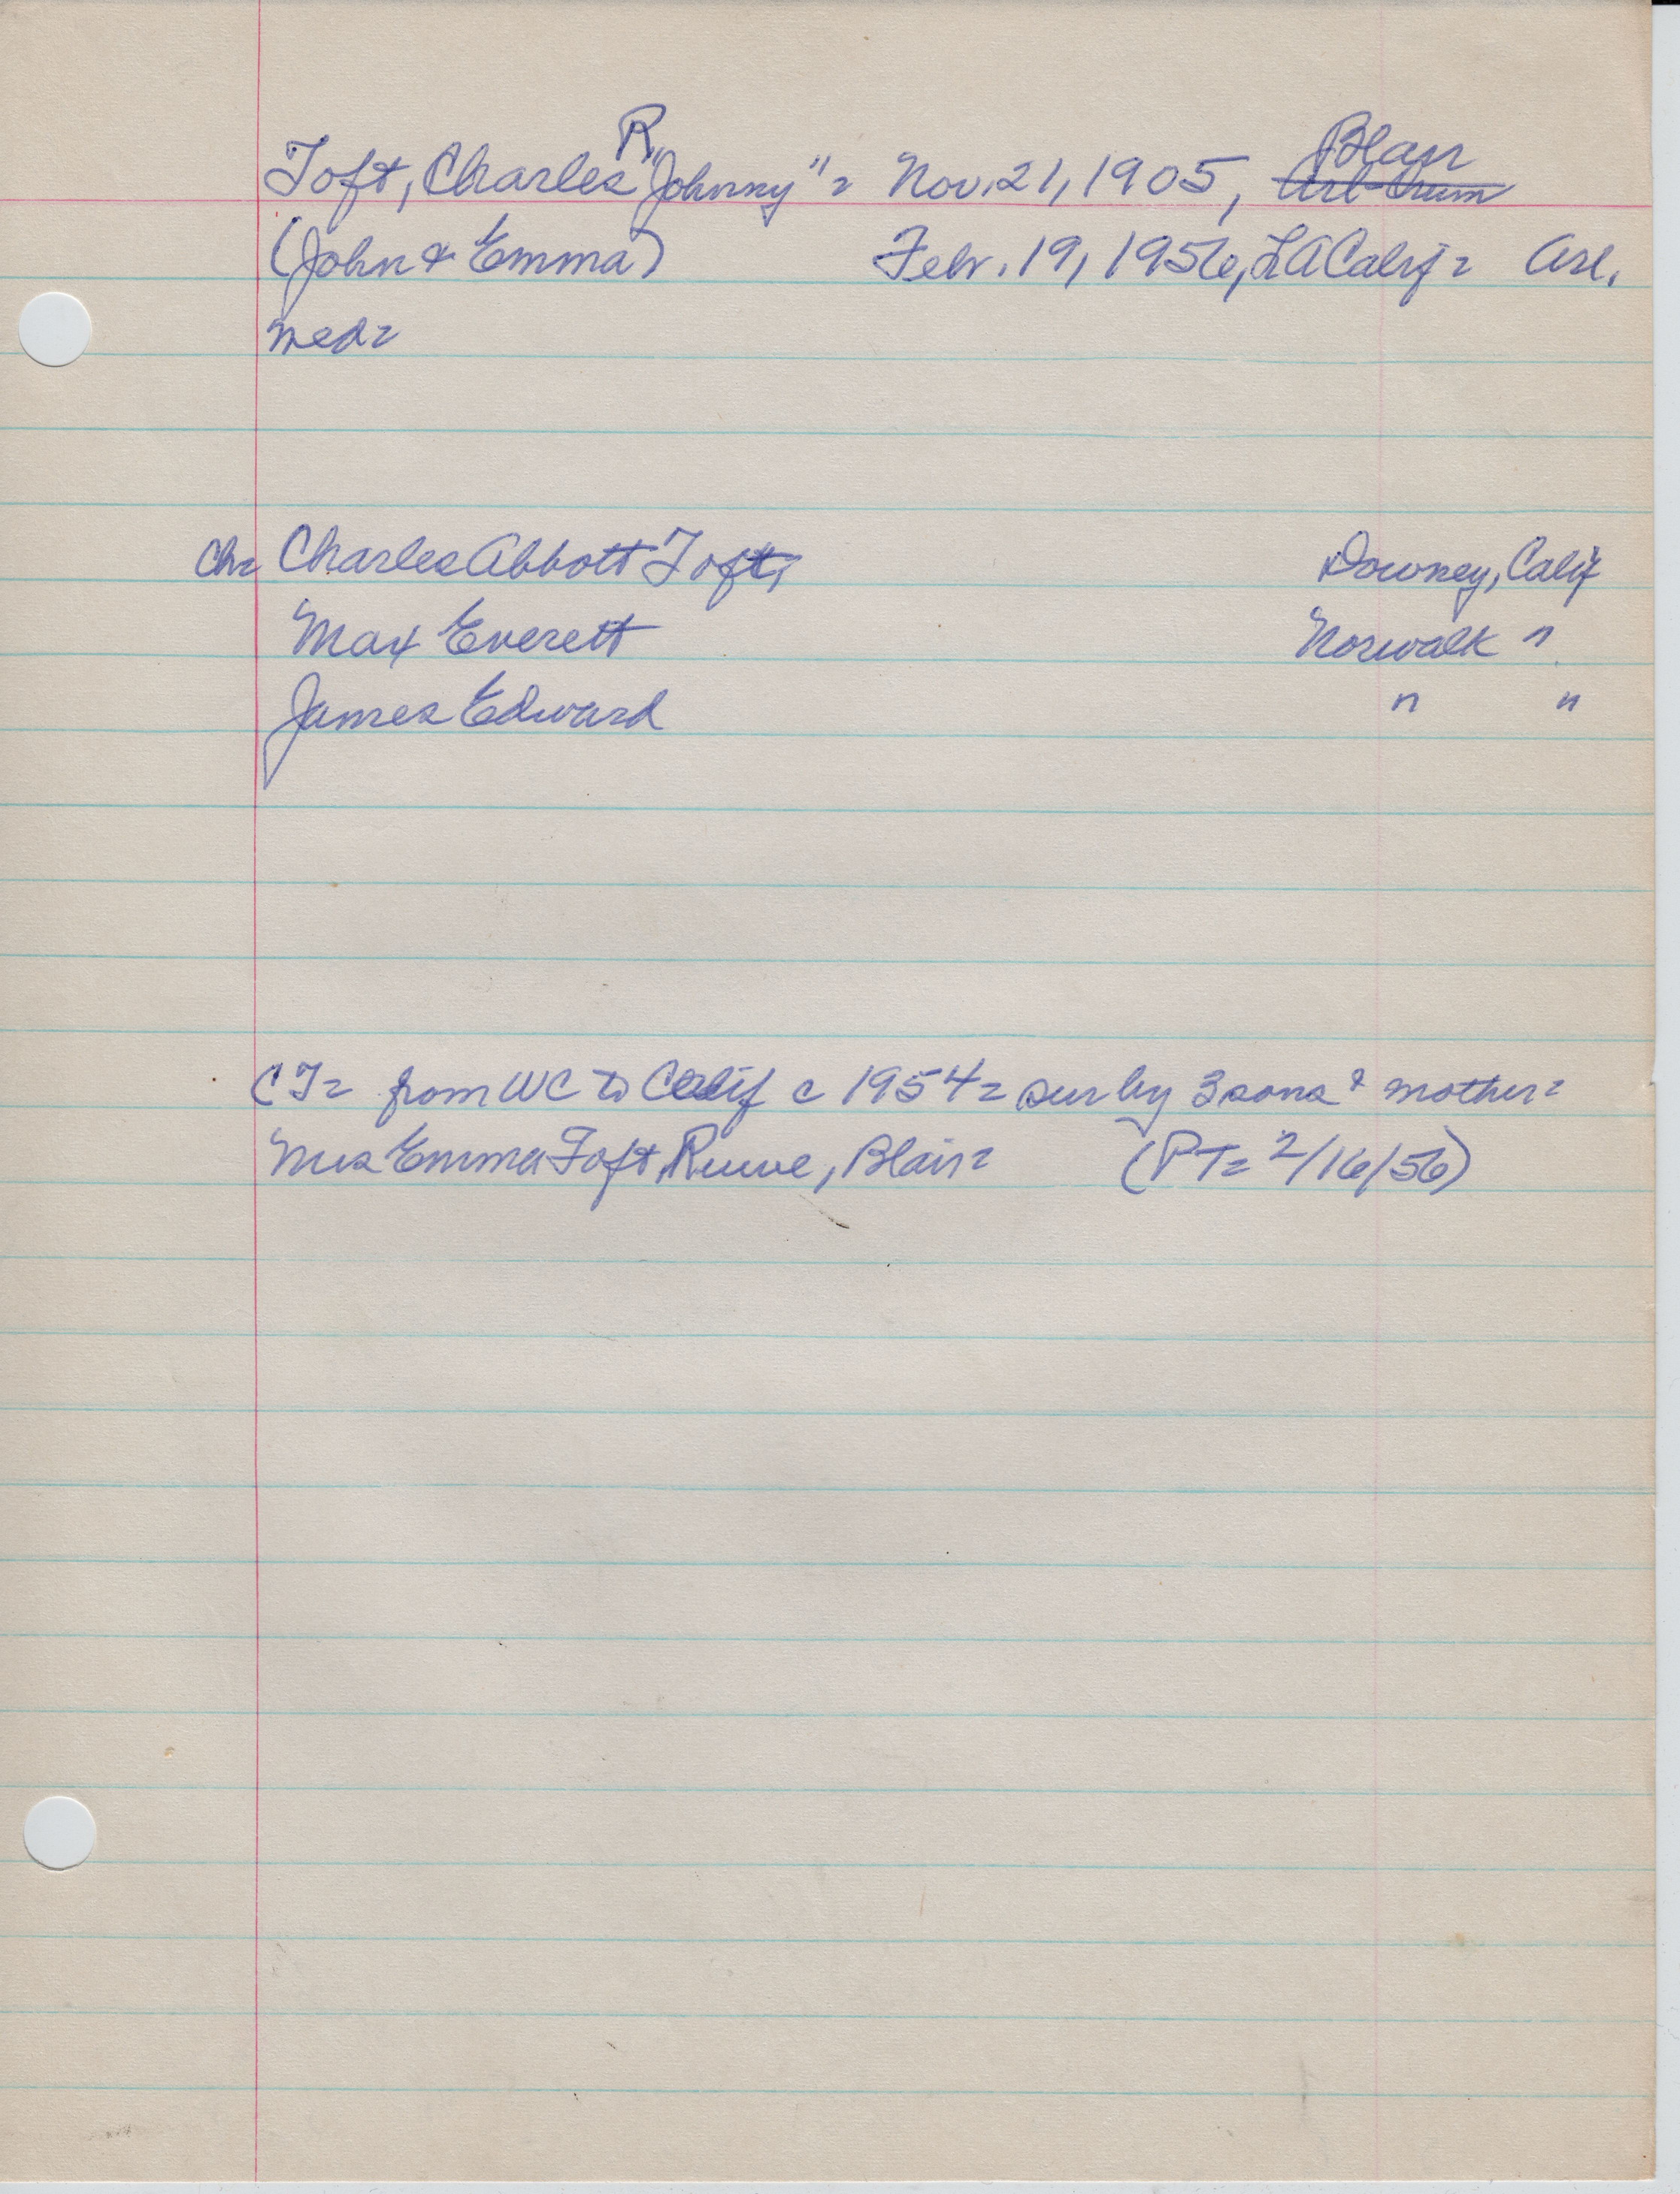 Toft, Charles R. "Johnny" = Nov. 21, 1905, Blair
(John & Emma) Febr. 19, 1956, LA Calif = Arl.
med=
Ch= Charles Abbott Toft, Downey, Calif
Max Everett Norwalk "
James Edward " "
CT= from WC to Calif c 1954= sur by 3 sons & mother=
Mrs Emma Toft, Blair= (PT= 2/16/56)